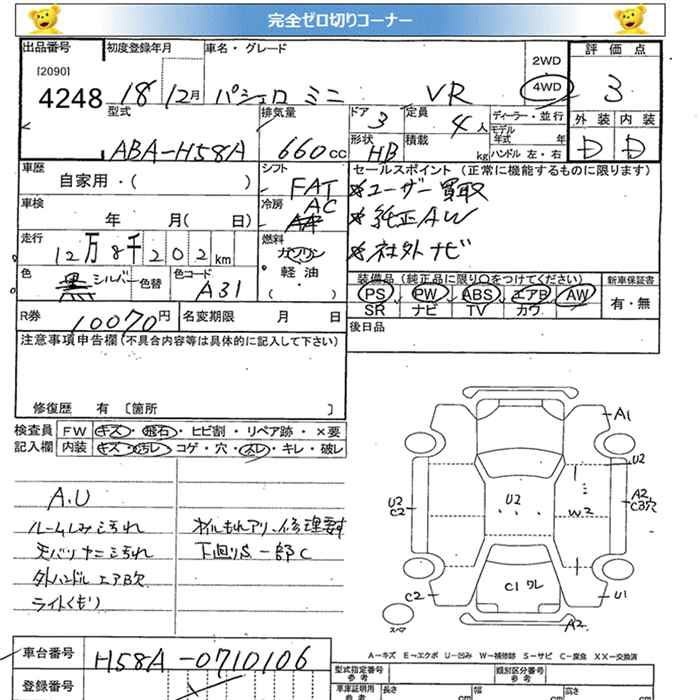 完全ゼロ切りコーナー
出品番号 初度登録年月 車名・グレード 2WD 評価点
[2090]
4248 18 12月 パジェロミニ VR 4WD 3
型式 排気量 ドア 3 定員 4人 ディーラー・並行 外装 内装
モデル年式 年
ABA-H58A 660cc 形状 HB 積載 kg ハンドル 左・右 D D
車歴 シフト セールスポイント (正常に機能するものに限ります)
自家用・( ) FAT ユーザー買取
車検 冷房 AC 純正AW
年 月( 日) 社外ナビ
走行 燃料
12万8千202km ガソリン
軽油
・
( )
色 黒 シルバー 色替 色コード A31
装備品 (純正品に限り○をつけてください) 新車保証書
PS PW ABS エアB AW 有・無
SR ナビ TV カワ
R券 10070円 名変期限 月 日
後日品
注意事項申告欄(不具合内容等は具体的に記入して下さい)
修復歴 有 〔箇所 〕
検査員 FW キズ・飛石・ヒビ割・リペア跡・×要
記入欄 内装 キズ・汚レ・コゲ・穴・スレ・キレ・破レ
A.U
ルームしみよごれ オイルもれアリ、修理要す
天バリキズよごれ 下回りS 一部C
外ハンドル エアB欠
ライトくもり
A1
U2
U2
C2
U2
W2
A2
C3穴
C1 ワレ
C2
U1
スペア
A2
A-キズ E-エクボ U-凹み W-補修跡 S-サビ C-腐食 XX-交換済
車台番号 H58A-0710106
型式指定番号 参考 類別区分番号 参考
登録番号
車庫証明用 参考 長さ cm 幅 cm 高さ cm